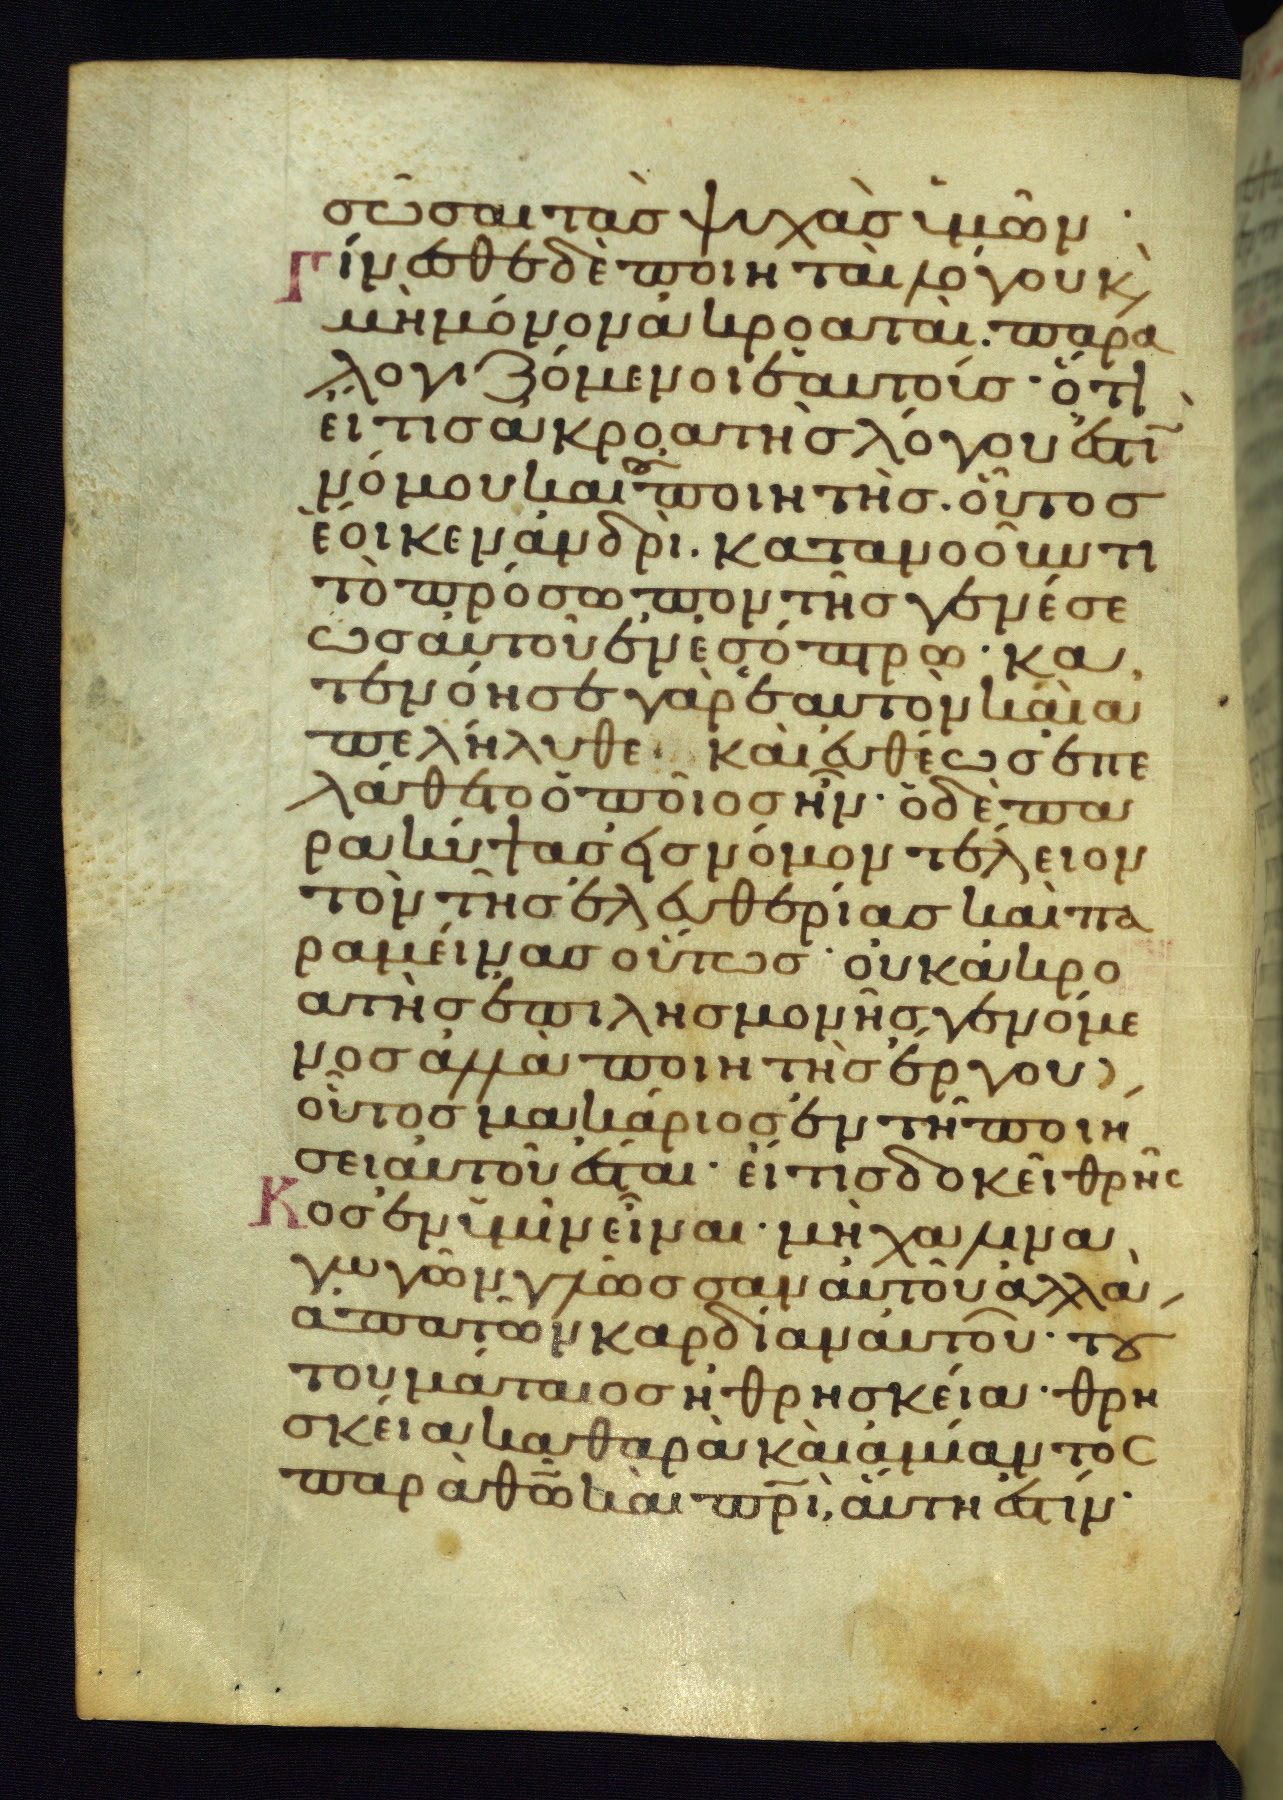 σῶσαι τὰσ ψυχὰσ ὑμῶν ·
Γίνεσθε δὲ ποιηταὶ λόγου κ̀
μὴ μόνον ἀκροαταὶ . παρα
λογιζόμενοι ἑαυτοίσ · ὅτι
εἴ τισ ἀκροατὴσ λόγου ἐστὶ
νόμου καὶ οὐ ποιητὴσ . οὗτοσ
ἐόικεν ἀνδρὶ . κατανοοῦντι
τὸ πρόσωπον τῆσ γενέσε
ωσ αυτοῦ ἐν ἐσόπτρω · κα
τενόησε γὰρ ἑαυτὸν καὶ α
πελήλυθε · καὶ ευθέωσ ἐπε
λάθετο ὁποῖοσ ἦν · ὁ δὲ πα
ρακύψασ εἰσ νόμον τέλειον
τὸν τῆσ ἐλευθερίασ καὶ πα
ραμείνασ οὕτωσ · ὀυκ ἀκρο
ατὴσ ἐπιλησμονῆσ γενόμε
νοσ ἀλλὰ ποιητὴσ ἔργου ,
οὗτοσ μακάριοσ ἐν τῆ ποιή
σει ἀυτοῦ ἔσται · ἔι τισ δοκεῖ θρῆσ
Κοσ ἐν ὑμῖν εἶναι · μὴ χαλινα
γωγῶν γλῶσσαν ἀυτοῦ ἀλλὰ
ἀπατῶν καρδίαν ἀυτοῦ · τȣ
του μάταιοσ ἡ θρησκέια · θρη
σκέια καθαρὰ κὰι ἀμίαντοσ
παρὰ θω̅ κὰι πρ̅ὶ, ἅυτη ἐστίν ·